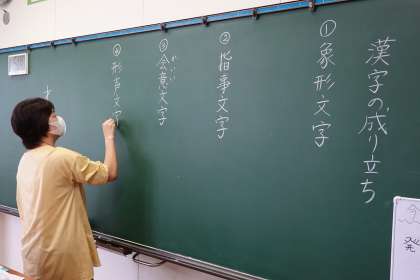 漢字の成り立ち
①象形文字
②指事文字
③会意文字
かいい
④形声文字